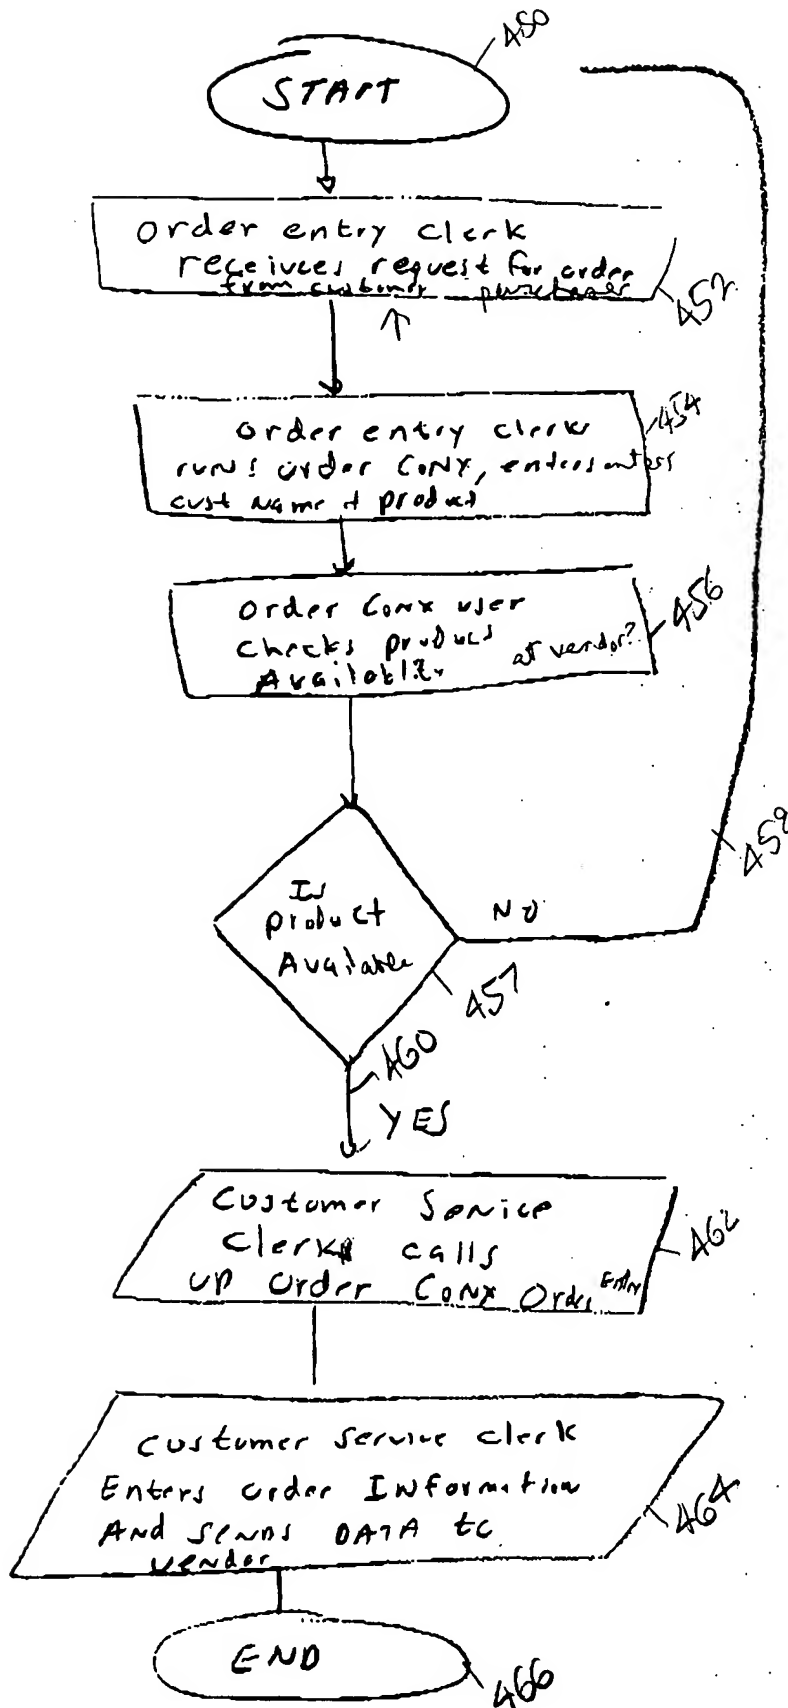 450
START
order entry clerk
receives request for order
from customer purchaser
452
order entry clerk
454
runs order CONX, enters
cust name + product
Order Conx user
456
checks product at vendor?
Is
product
Available
NO
457
460
YES
Customer Service
Clerk calls
462
up order CONX Order Entry
customer service clerk
Enters order INformation
And sends DATA to
464
vendor
END
466